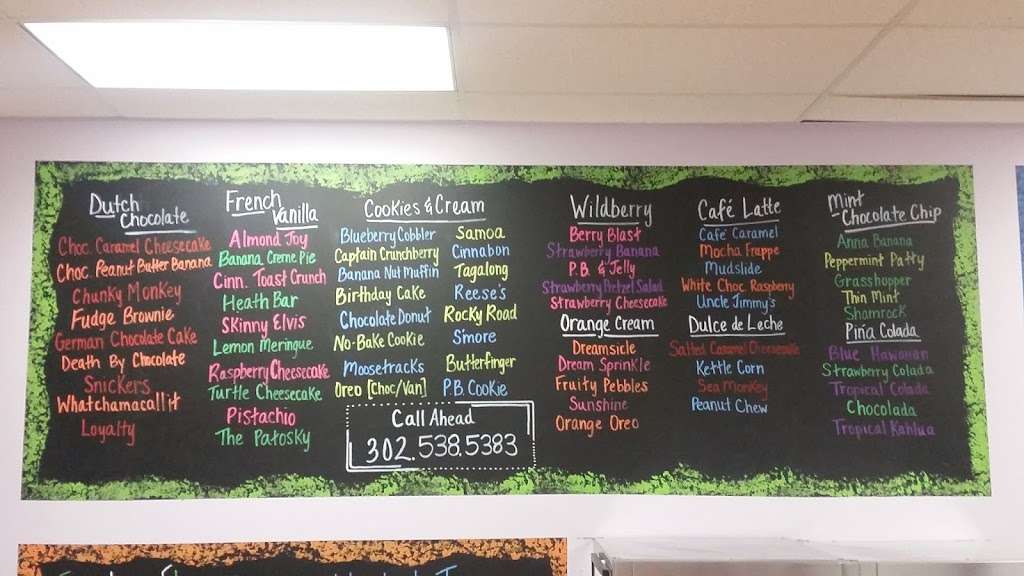 Dutch
Chocolate
Choc. Caramel Cheesecake
Choc. Peanut Butter Banana
Chunky Monkey
Fudge Brownie
German Chocolate Cake
Death By Chocolate
Snickers
Whatchamacallit
Loyalty
French
Vanilla
Almond Joy
Banana Creme Pie
Cinn. Toast Crunch
Heath Bar
Skinny Elvis
Lemon Meringue
Raspberry Cheesecake
Turtle Cheesecake
Pistachio
The Patosky
Cookies & Cream
Blueberry Cobbler
Captain Crunchberry
Banana Nut Muffin
Birthday Cake
Chocolate Donut
No-Bake Cookie
Moosetracks
Oreo [Choc/Van]
Samoa
Cinnabon
Tagalong
Reese's
Rocky Road
Smore
Butterfinger
P.B. Cookie
Call Ahead
302.538.5383
Wildberry
Berry Blast
Strawberry Banana
P.B. & Jelly
Strawberry Pretzel Salad
Strawberry Cheesecake
Orange Cream
Dreamsicle
Dream Sprinkle
Fruity Pebbles
Sunshine
Orange Oreo
Café Latte
Café Caramel
Mocha Frappe
Mudslide
White Choc Raspberry
Uncle Jimmy's
Dulce de Leche
Salted Caramel Cheesecake
Kettle Corn
Sea Monkey
Peanut Chew
Mint
Chocolate Chip
Anna Banana
Peppermint Patty
Grasshopper
Thin Mint
Shamrock
Piña Colada
Blue Hawaiian
Strawberry Colada
Tropical Colada
Chocolada
Tropical Kahlua